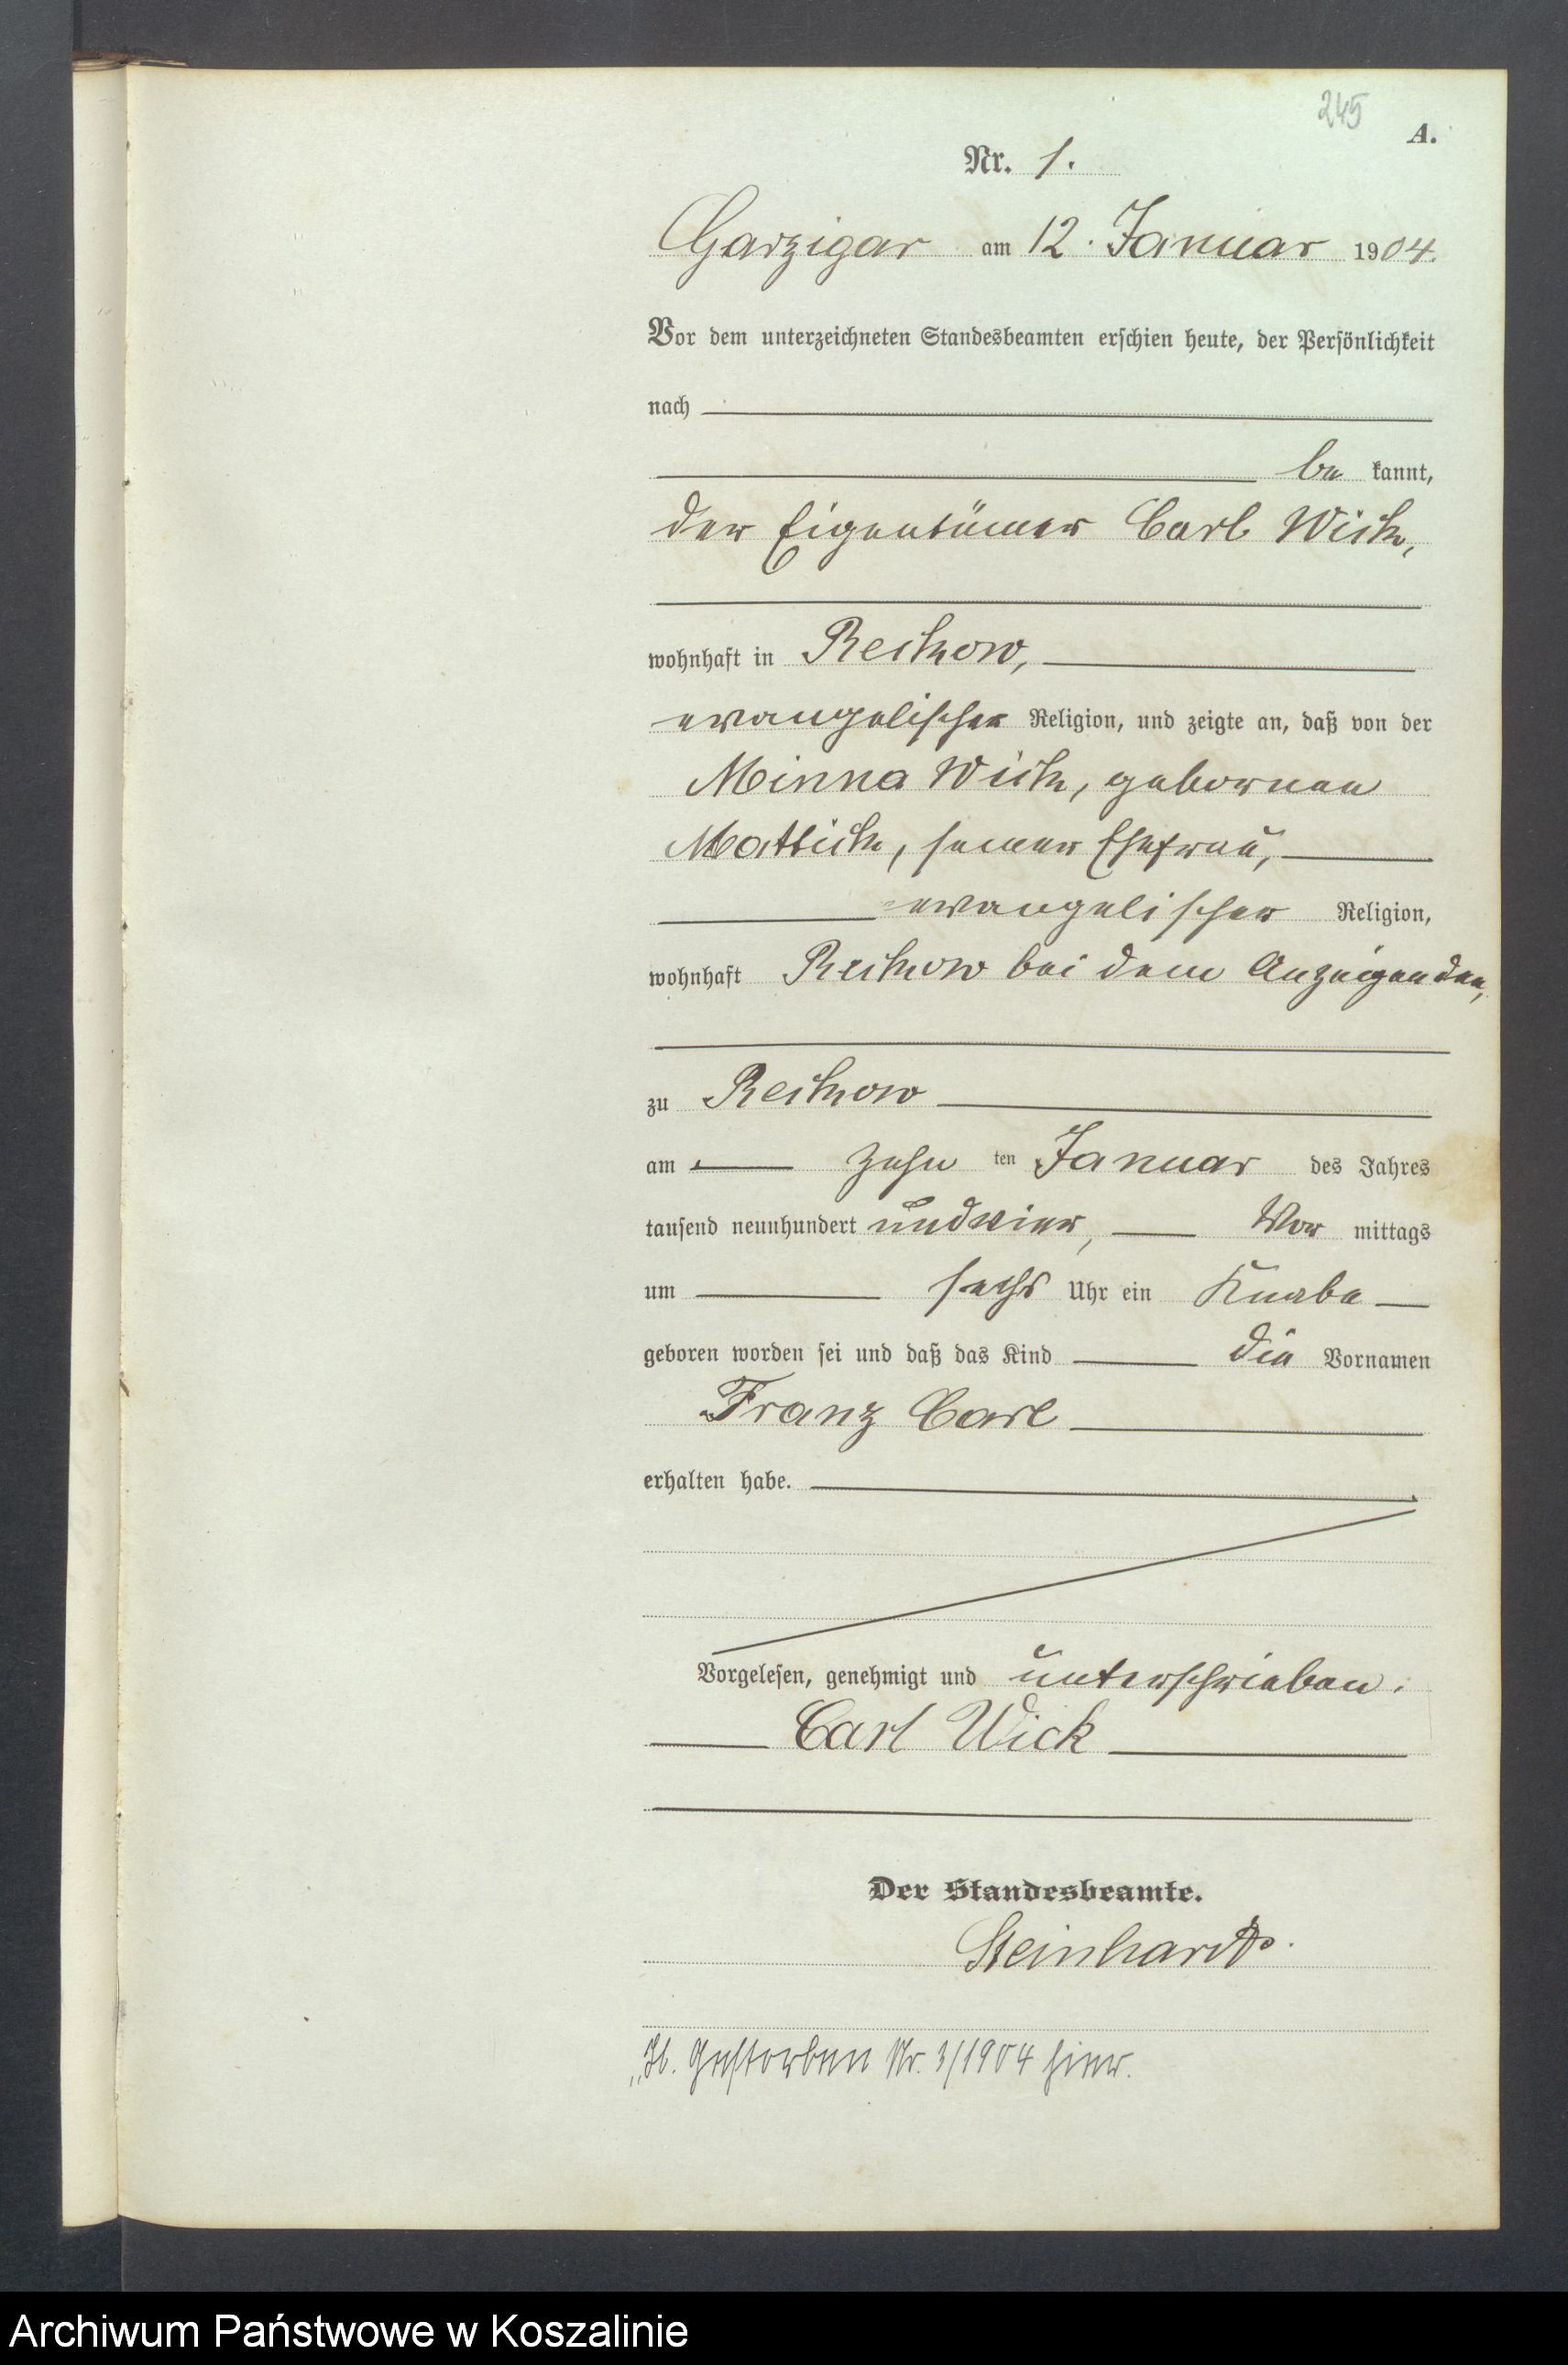 245
A.
Nr. 1.
Garzigar am 12. Januar 1904.
Vor dem unterzeichneten Standesbeamten erschien heute, der Persönlichkeit
nach
be kannt,
der Eigentümer Carl Wick,
wohnhaft in Reckow,
evangelischer Religion, und zeigte an, daß von der
Minna Wick, gebornen
Mattick, seiner Ehefrau,
evangelischer Religion,
wohnhaft Reckow bei dem Anzeigenden,
zu Reckow
am zehn ten Januar des Jahres
tausend neunhundert undvier, Vor mittags
um sechs Uhr ein Knabe
geboren worden sei und daß das Kind die Vornamen
Franz Carl
erhalten habe.
Vorgelesen, genehmigt und unterschrieben.
Carl Wick
Der Standesbeamte.
Steinhardt.
Gestorben Nr. 3/1904 hier.
Archiwum Państwowe w Koszalinie